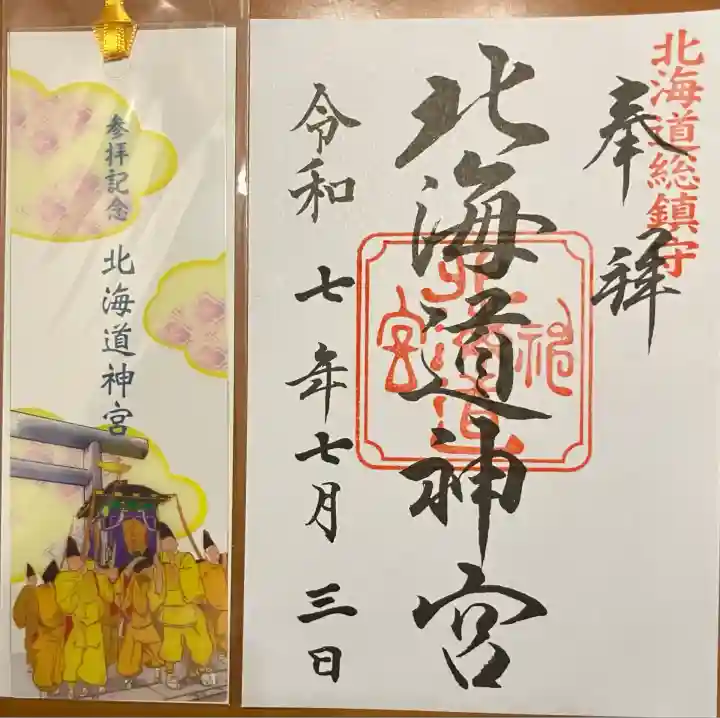 北海道総鎮守
奉拝
北海道神宮
北海道神宮
令和七年七月三日
参拝記念
北海道神宮